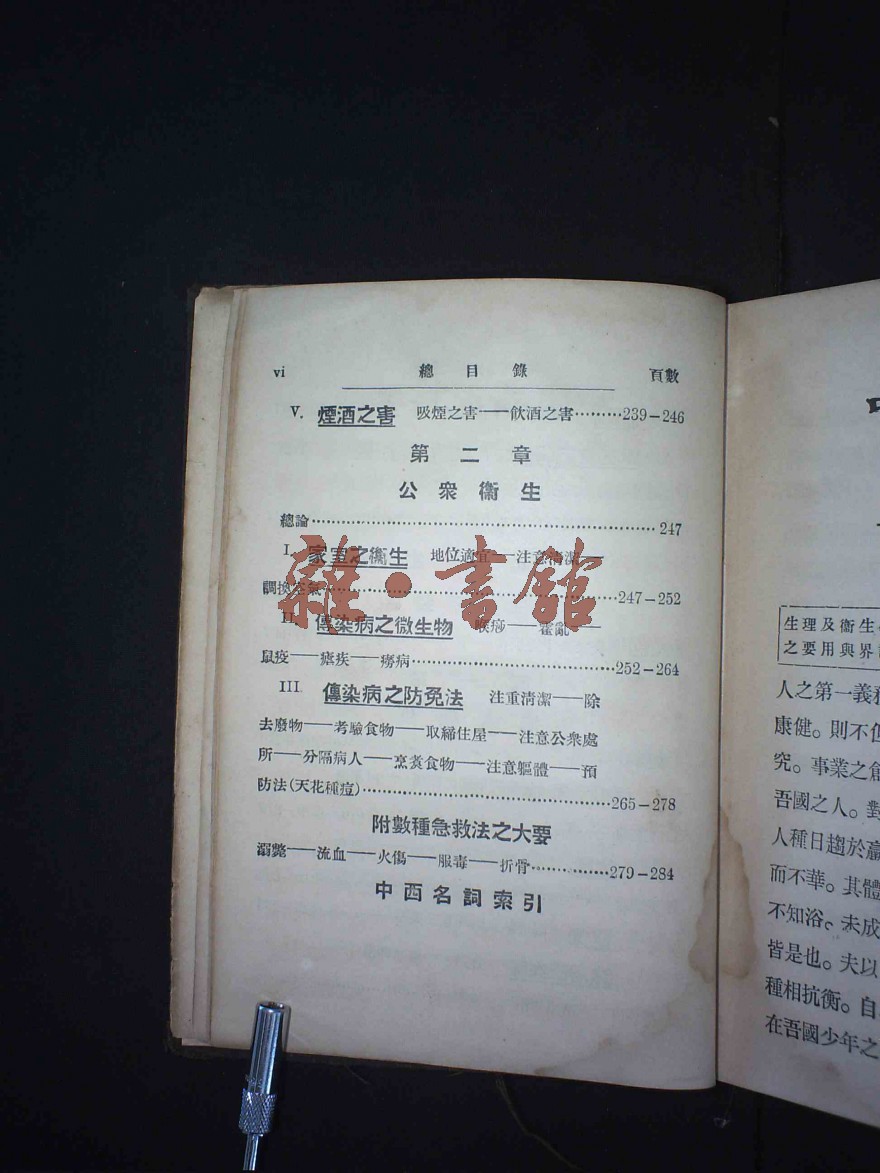 vi 總目錄 頁數
V. 煙酒之害 吸煙之害——飲酒之害………239-246
第二章
公衆衞生
總論………247
I. 家室之衞生 地位適宜——注意清潔——
調換空氣………247-252
II. 傳染病之微生物 喉痧——霍亂——
鼠疫——瘧疾——癆病………252-264
III. 傳染病之防免法 注重清潔——除
去廢物——考驗食物——取締住屋——注意公衆處
所——分隔病人——烹煑食物——注意軀體——預
防法(天花種痘)………265-278
附數種急救法之大要
溺斃——流血——火傷——服毒——折骨………279-284
中西名詞索引
雜·書館
生理及衞生
之要用與界
人之第一義務
康健。則不但
究。事業之創
吾國之人。對
人種日趨於羸
而不華。其體
不知浴。未成
皆是也。夫以
種相抗衡。自
在吾國少年之